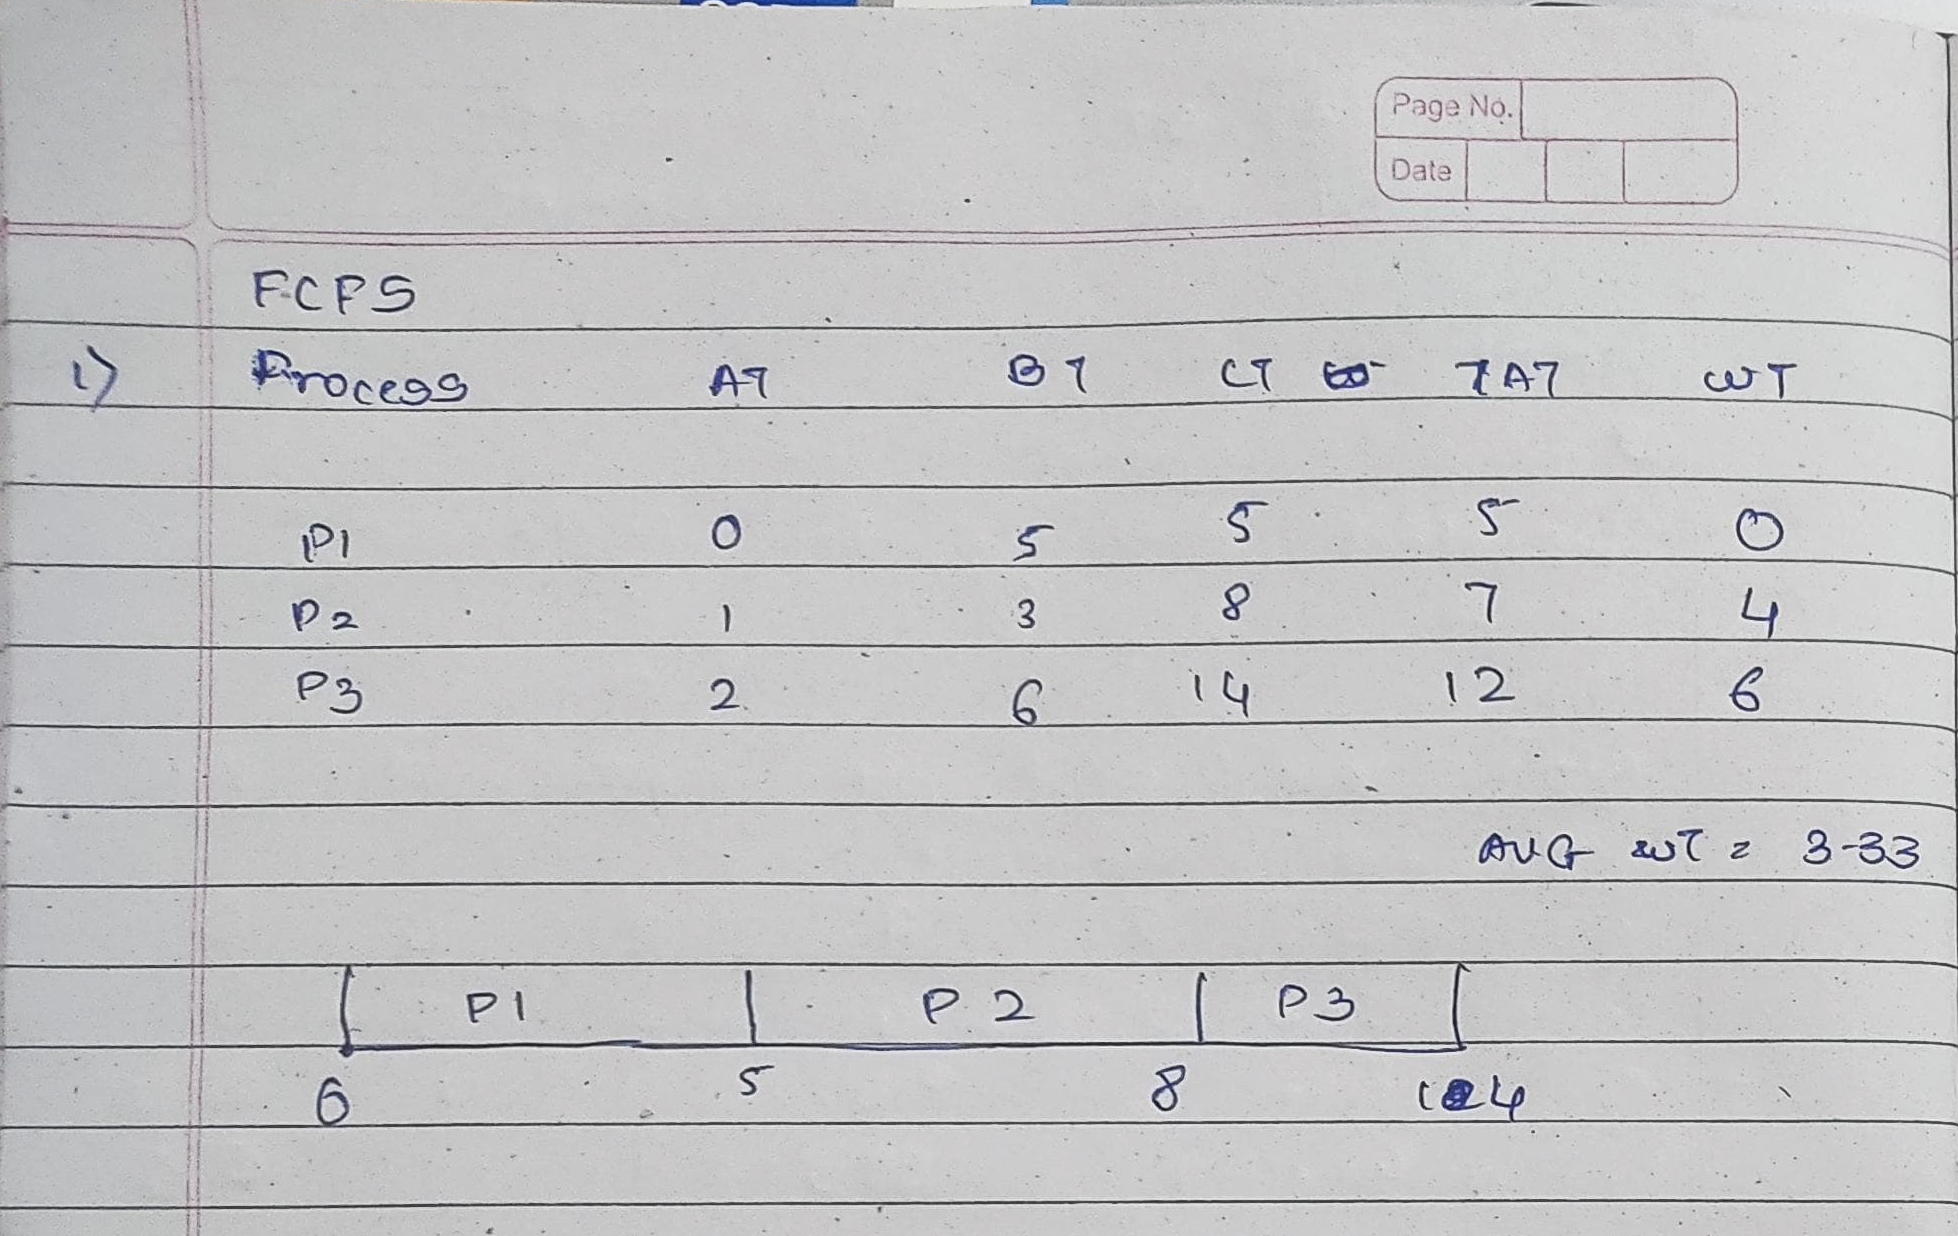 Page No.
Date
FCFS
1) Process AT BT CT TAT WT
P1 0 5 5 5 0
P2 1 3 8 7 4
P3 2 6 14 12 6
AVG WT = 3.33
P1 P2 P3
0 5 8 14